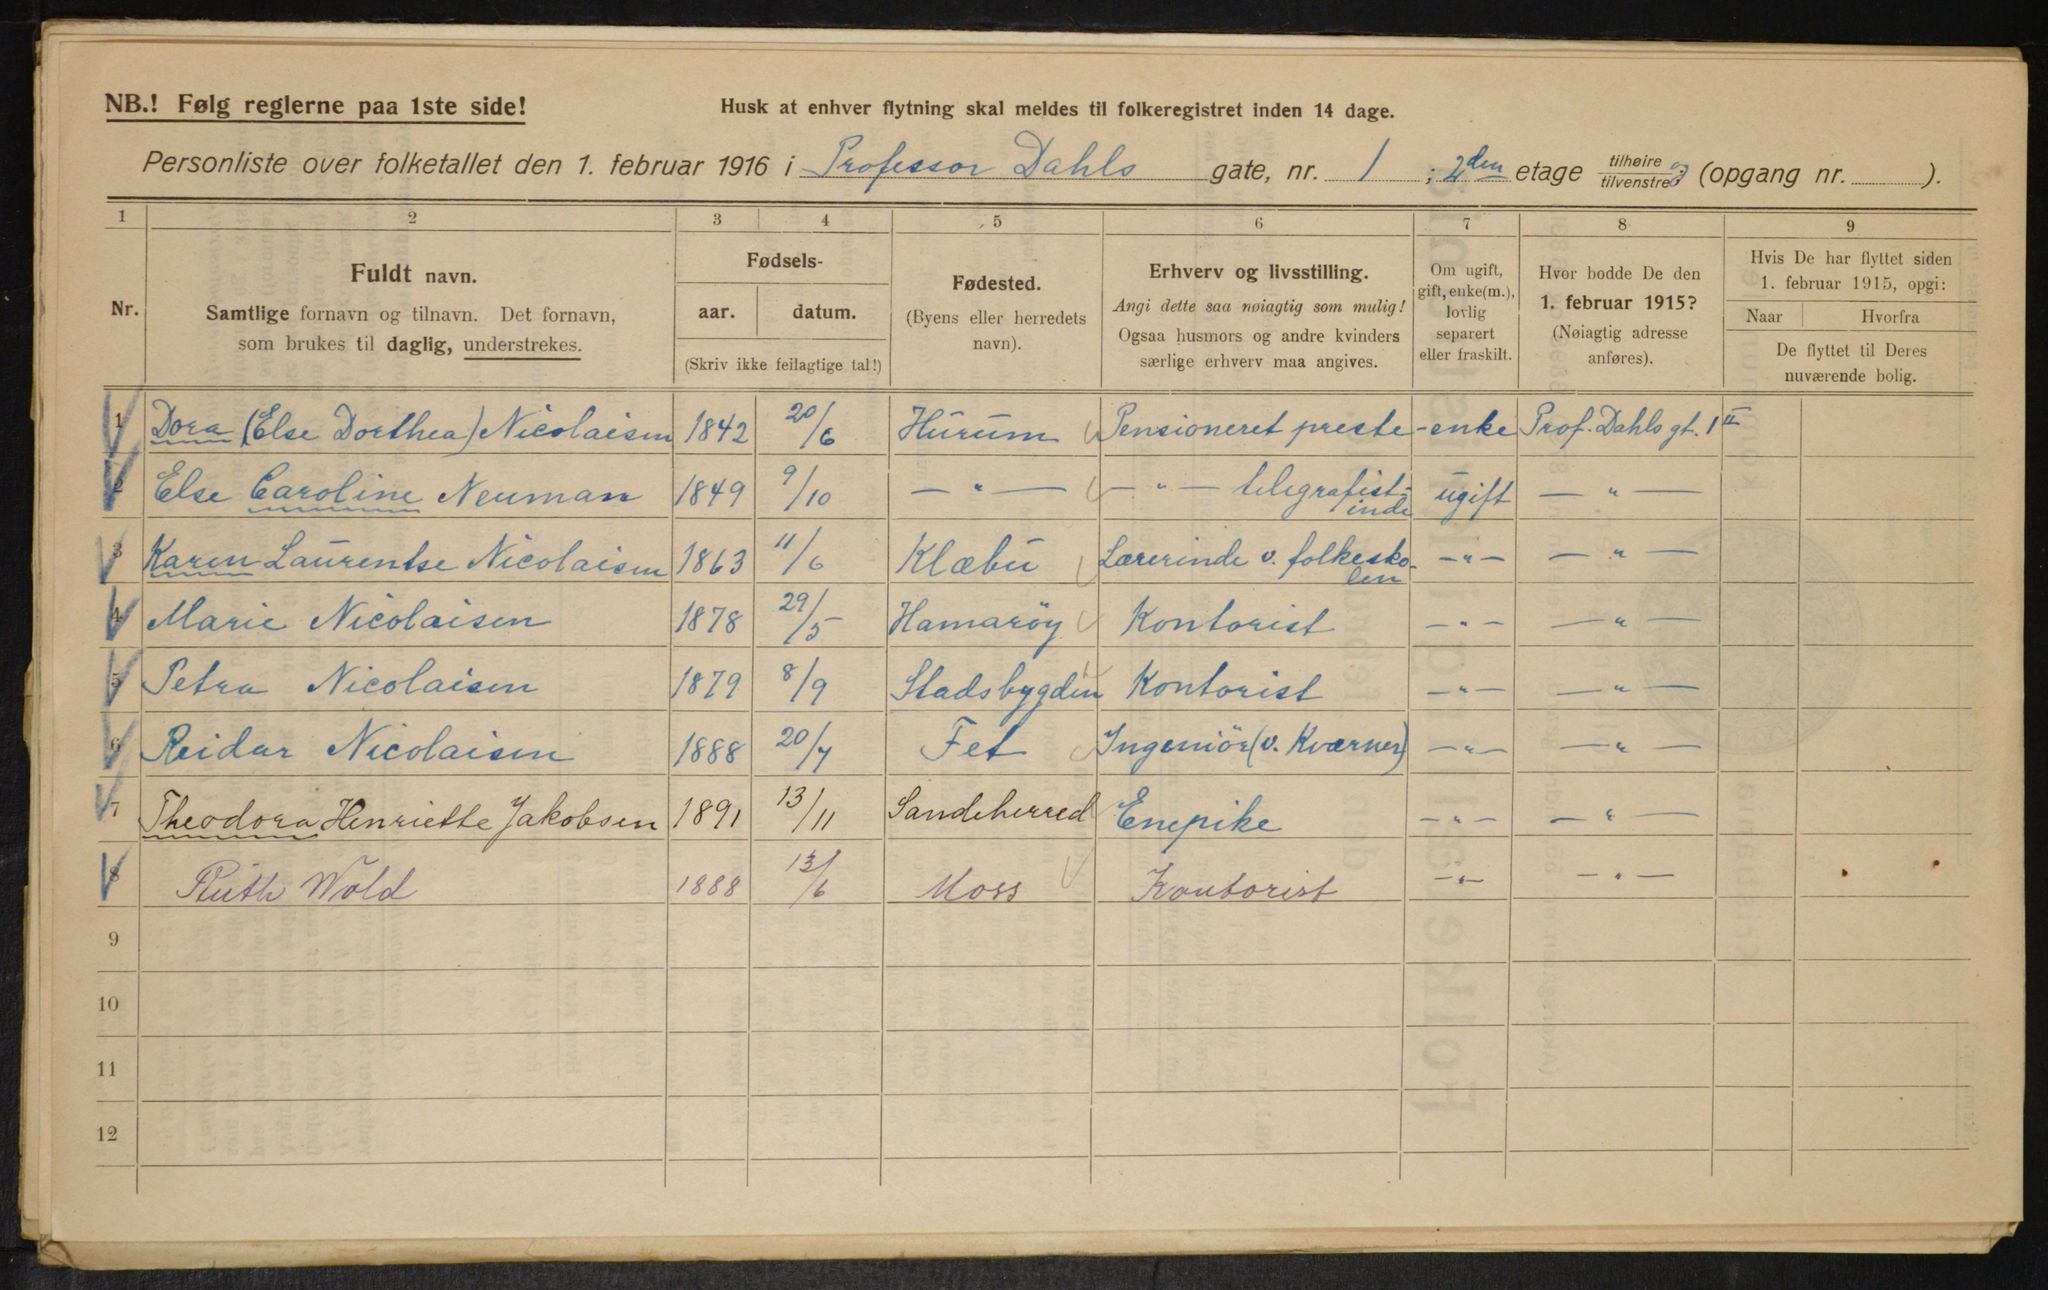 NB.! Følg reglerne paa 1ste side!
Husk at enhver flytning skal meldes til folkeregistret inden 14 dage.
Personliste over folketallet den 1. februar 1916 i Professor Dahls gate, nr. 1 ; 2den etage tilhøire og tilvenstre (opgang nr. ).
1 2 3 4 5 6 7 8 9
Nr.
Fuldt navn.
Samtlige fornavn og tilnavn. Det fornavn,
som brukes til daglig, understrekes.
Fødsels-
aar. datum.
(Skriv ikke feilagtige tal!)
Fødested.
(Byens eller herredets
navn).
Erhverv og livsstilling.
Angi dette saa nøiagtig som mulig!
Ogsaa husmors og andre kvinders
særlige erhverv maa angives.
Om ugift,
gift, enke(m.),
lovlig
separert
eller fraskilt.
Hvor bodde De den
1. februar 1915?
(Nøiagtig adresse
anføres).
Hvis De har flyttet siden
1. februar 1915, opgi:
Naar Hvorfra
De flyttet til Deres
nuværende bolig.
1 Dora (Else Dorthea) Nicolaisen 1842 20/6 Hurum Pensioneret preste -enke Prof. Dahls gt. 1 II
2 Else Caroline Neuman 1849 9/10 — " — — " — telegrafist-inde ugift — " —
3 Karen Laurentse Nicolaisen 1863 11/6 Klæbu Lærerinde v. folkesko-len — " — — " —
4 Marie Nicolaisen 1878 29/5 Hamarøy Kontorist — " — — " —
5 Petra Nicolaisen 1879 8/9 Stadsbygden Kontorist — " — — " —
6 Reidar Nicolaisen 1888 20/7 Fet Ingeniör (v. Kværner) — " — — " —
7 Theodora Henriette Jakobsen 1891 13/11 Sandeherred Enepike — " — — " —
8 Ruth Wold 1888 13/6 Moss Kontorist — " — — " —
9
10
11
12